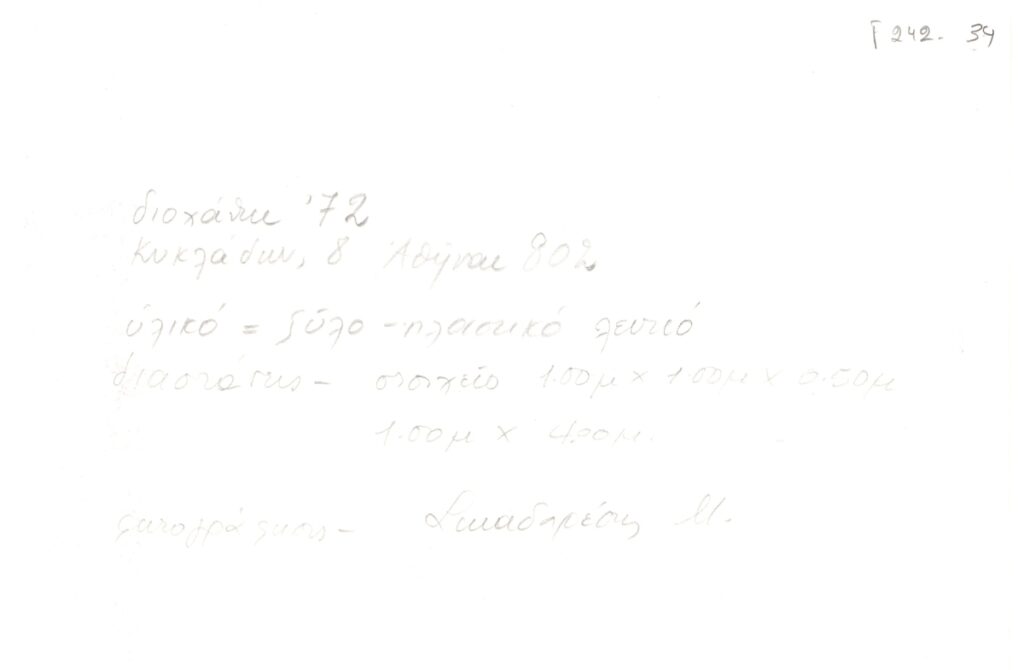 Γ 242. 34
διοχάντη '72
Κυκλάδων, 8 Ἀθῆναι 802
ὑλικό = ξύλο - πλαστικό λευκό
διαστάσεις - στοιχεῖο 1.00μ × 1.00μ × 0.50μ
1.00μ × 4.00μ.
φωτογράφησις - Μ.